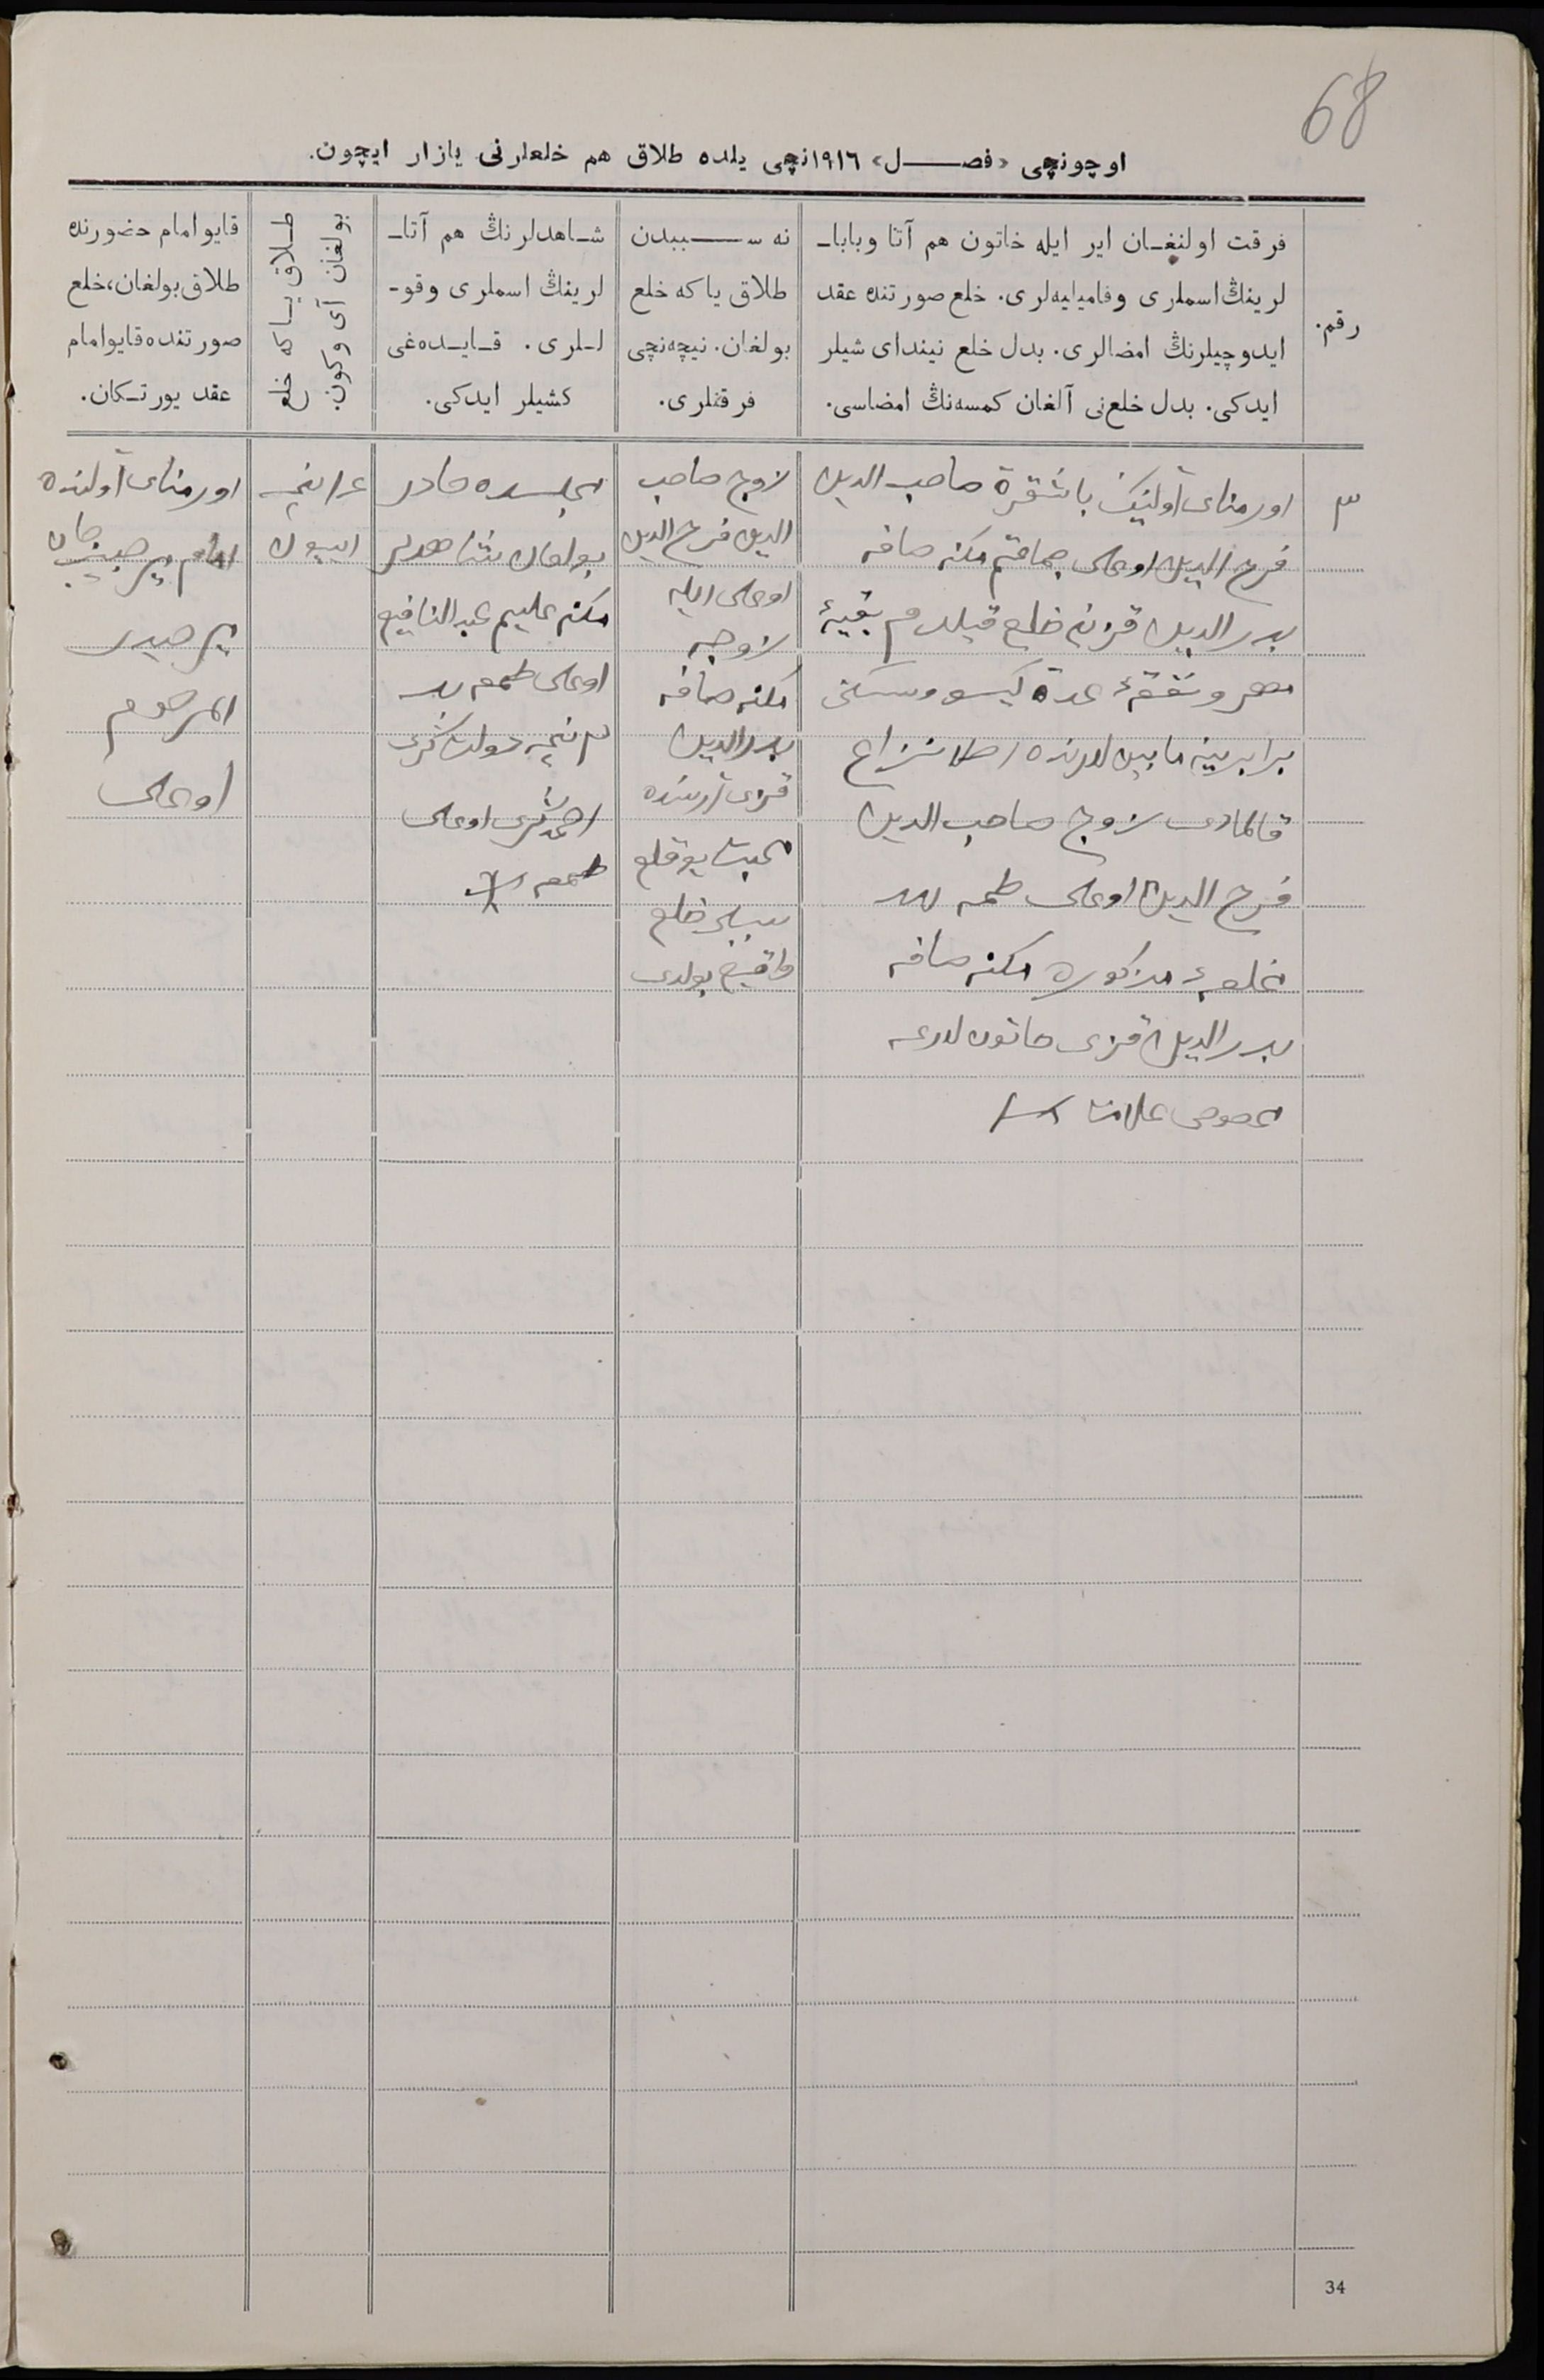 68
اوچونچی «فصل» ١٩١٦نچی یلده طلاق هم خلعلرنی یازار ایچون.
رقم.
فرقت اولنغان ایر ایله خاتون هم آتا وبابا-
لرینڭ اسملری وفامیلیه‌لری. خلع صورتنده عقد
ایدوچیلرنڭ امضالری. بدل خلع نیندای شیلر
ایدکی. بدل خلعنی آلغان کمسه‌نڭ امضاسی.
نه سببدن
طلاق یاکه خلع
بولغان. نیچه‌نچی
فرقتلری.
شاهدلرنڭ هم آتا-
لرینڭ اسملری وقو-
للری. قایده‌غی
کشیلر ایدکی.
طلاق یاکه خلع
بولغان آی وکون.
قایو امام حضورنده
طلاق بولغان، خلع
صورتنده قایو امام
عقد یورتکان.
٣
اورمنای آولنیڭ باشقرة صاحب الدین
فرح الدین اوغلی جماقتم مکنه صافه
بدر الدین قزین خلع قیلدم بقیهٔ
مهر ونفقهٔ عدة کیسو وسکنی
برابرینه مابین لارنده اصلا نزاع
قالمادی زوج صاحب الدین
فرح الدین اوغلی طمغه
مخلوعهٔ مذکوره مکنه صافه
بدر الدین قزی خاتون لارغه
مخصوص علامت
زوج صاحب
الدین فرح الدین
اوغلی ایله
زوجه
مکنه صافه
بدر الدین
قزی آرسنده
محبت یوقلغ
سببلی خلع
واقیع بولدی
مجلسده حاضر
بولغان شاهدلر
مکنم علیم عبد النافیع
اوغلی طمغه
٢ نچی دولت گری
احمد گری اوغلی
طمغه
اییون
اورمنای آولنده
امام پیر حبیب جان
پیر حیدر
المرحوم
اوغلی
34